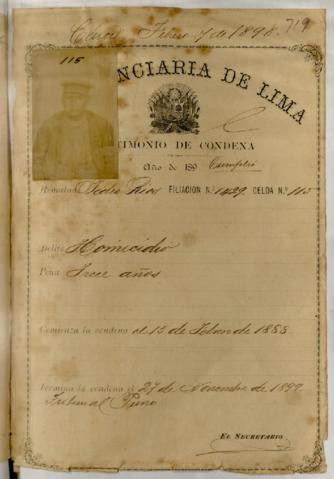 Febro 7 de 1898. 719
115
NCIARIA DE LIMA
TIMONIO DE CONDENA
Año de 189 Cumplió
Rematado Pedro Rios FILIACION N.º 1429 CELDA N.º 115
Delito Homicidio
Pena Trece años
Comienza la condena el 15 de Febro de 1885
Termina la condena el 27 de Noviembre de 1897
Tribunal Puno
EL SECRETARIO